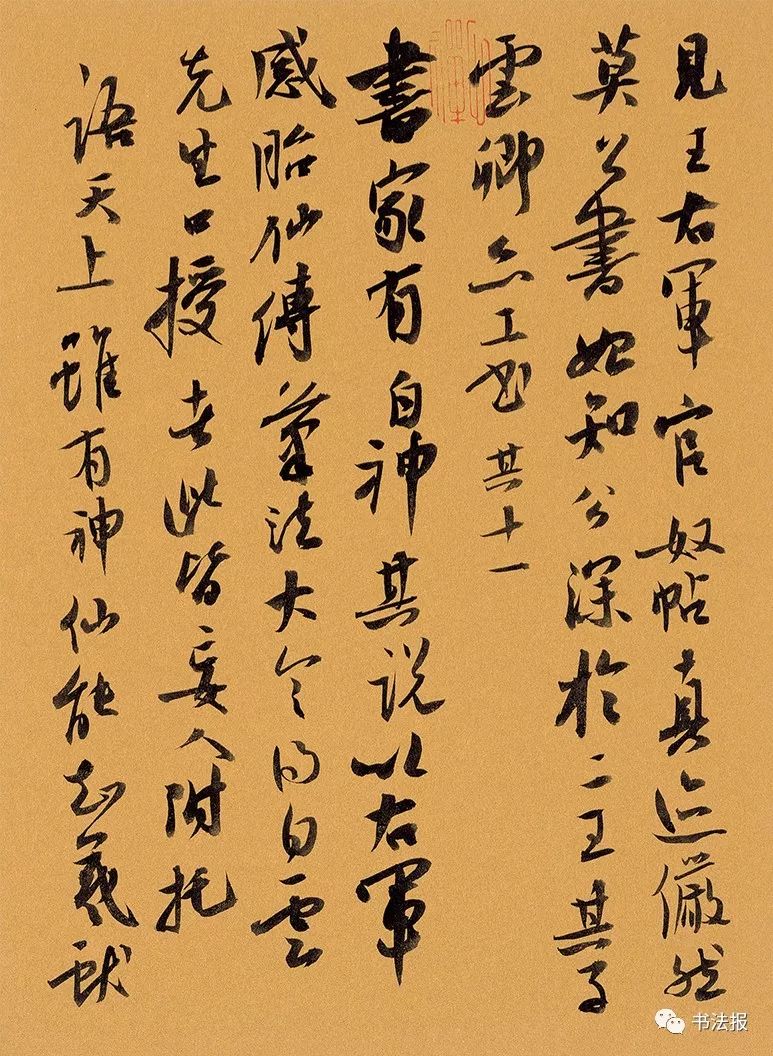 見王右軍官奴帖真迹儼然
莫公書始知公深於二王其子
雲卿亦工書 其十一
書家有自神其説以右軍
感胎仙傳筆法大令得白雲
先生口授者此皆妄人附托
語天上雖有神仙能知羲獻
书法报